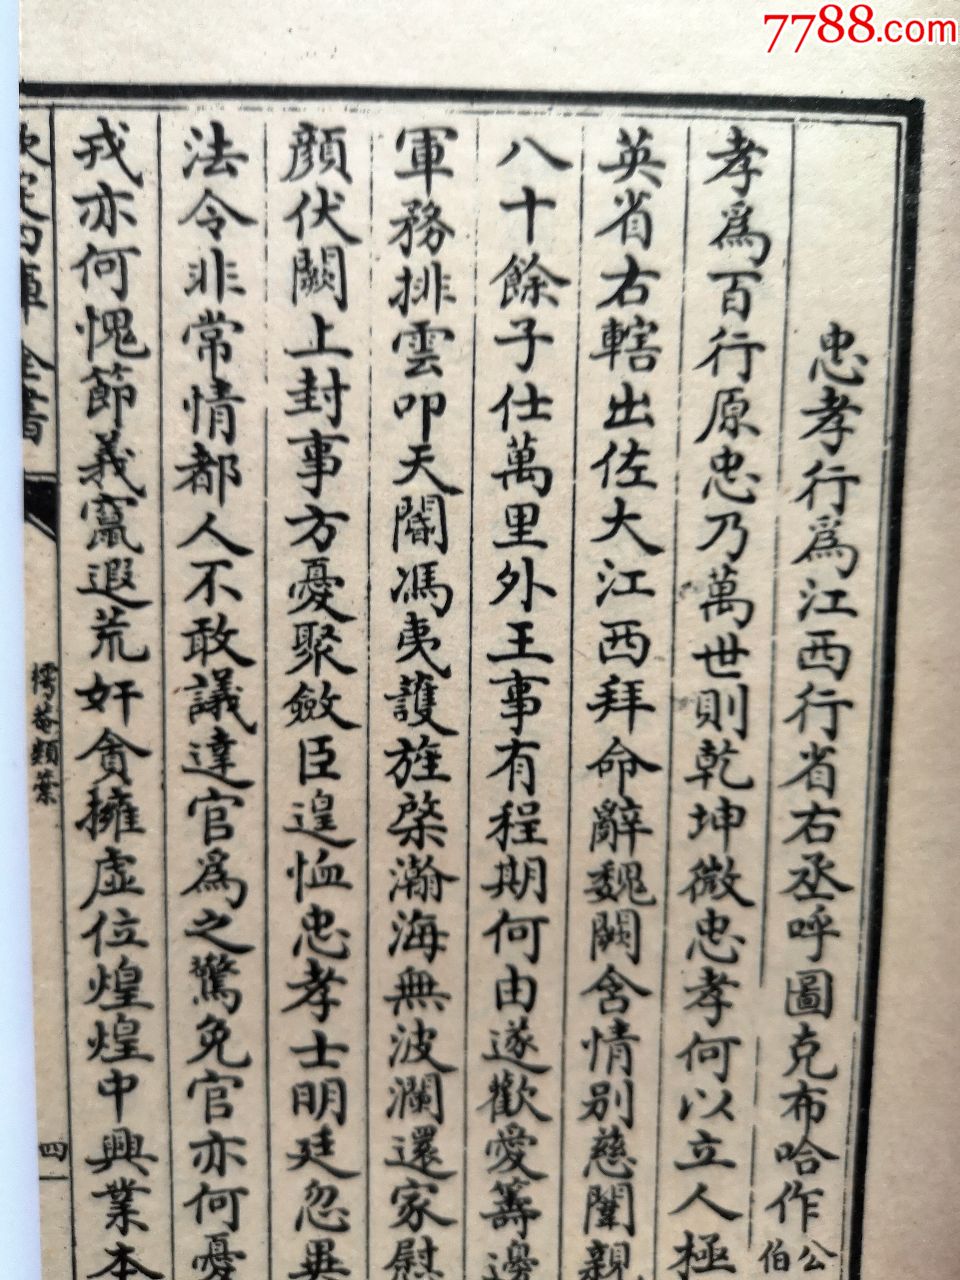 7788.com
忠孝行爲江西行省右丞呼圖克布哈作公
伯
孝爲百行原忠乃萬世則乾坤微忠孝何以立人極
英省右轄出佐大江西拜命辭魏闕含情别慈闈親
八十餘子仕萬里外王事有程期何由遂歡愛籌邊
軍務排雲叩天閽馮夷護旌棨瀚海無波瀾還家慰
顔伏闕上封事方憂聚斂臣遑恤忠孝士明廷忽異
法令非常情都人不敢議達官爲之驚免官亦何憂
戎亦何愧節義竄遐荒奸貪擁虚位煌煌中興業本
欽定四庫全書
樗菴類藁
四